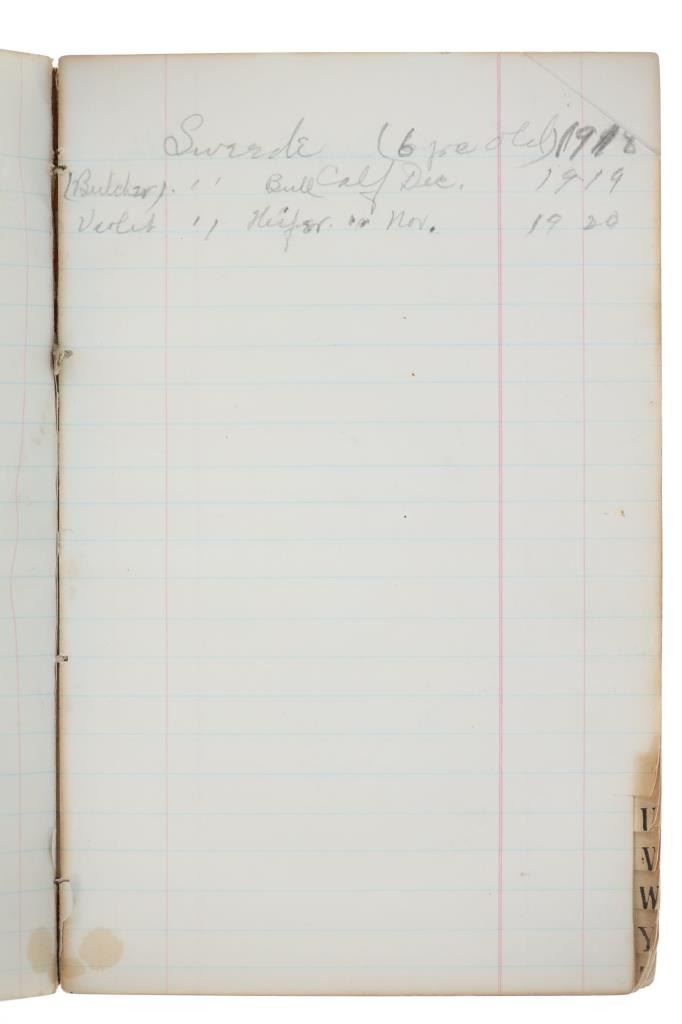 Sweede (6 yrs old) 1918
(Butcher). '' Bull Calf Dec. 1919
Violet '' Heifer. '' Nov. 1920
U
V
W
Y